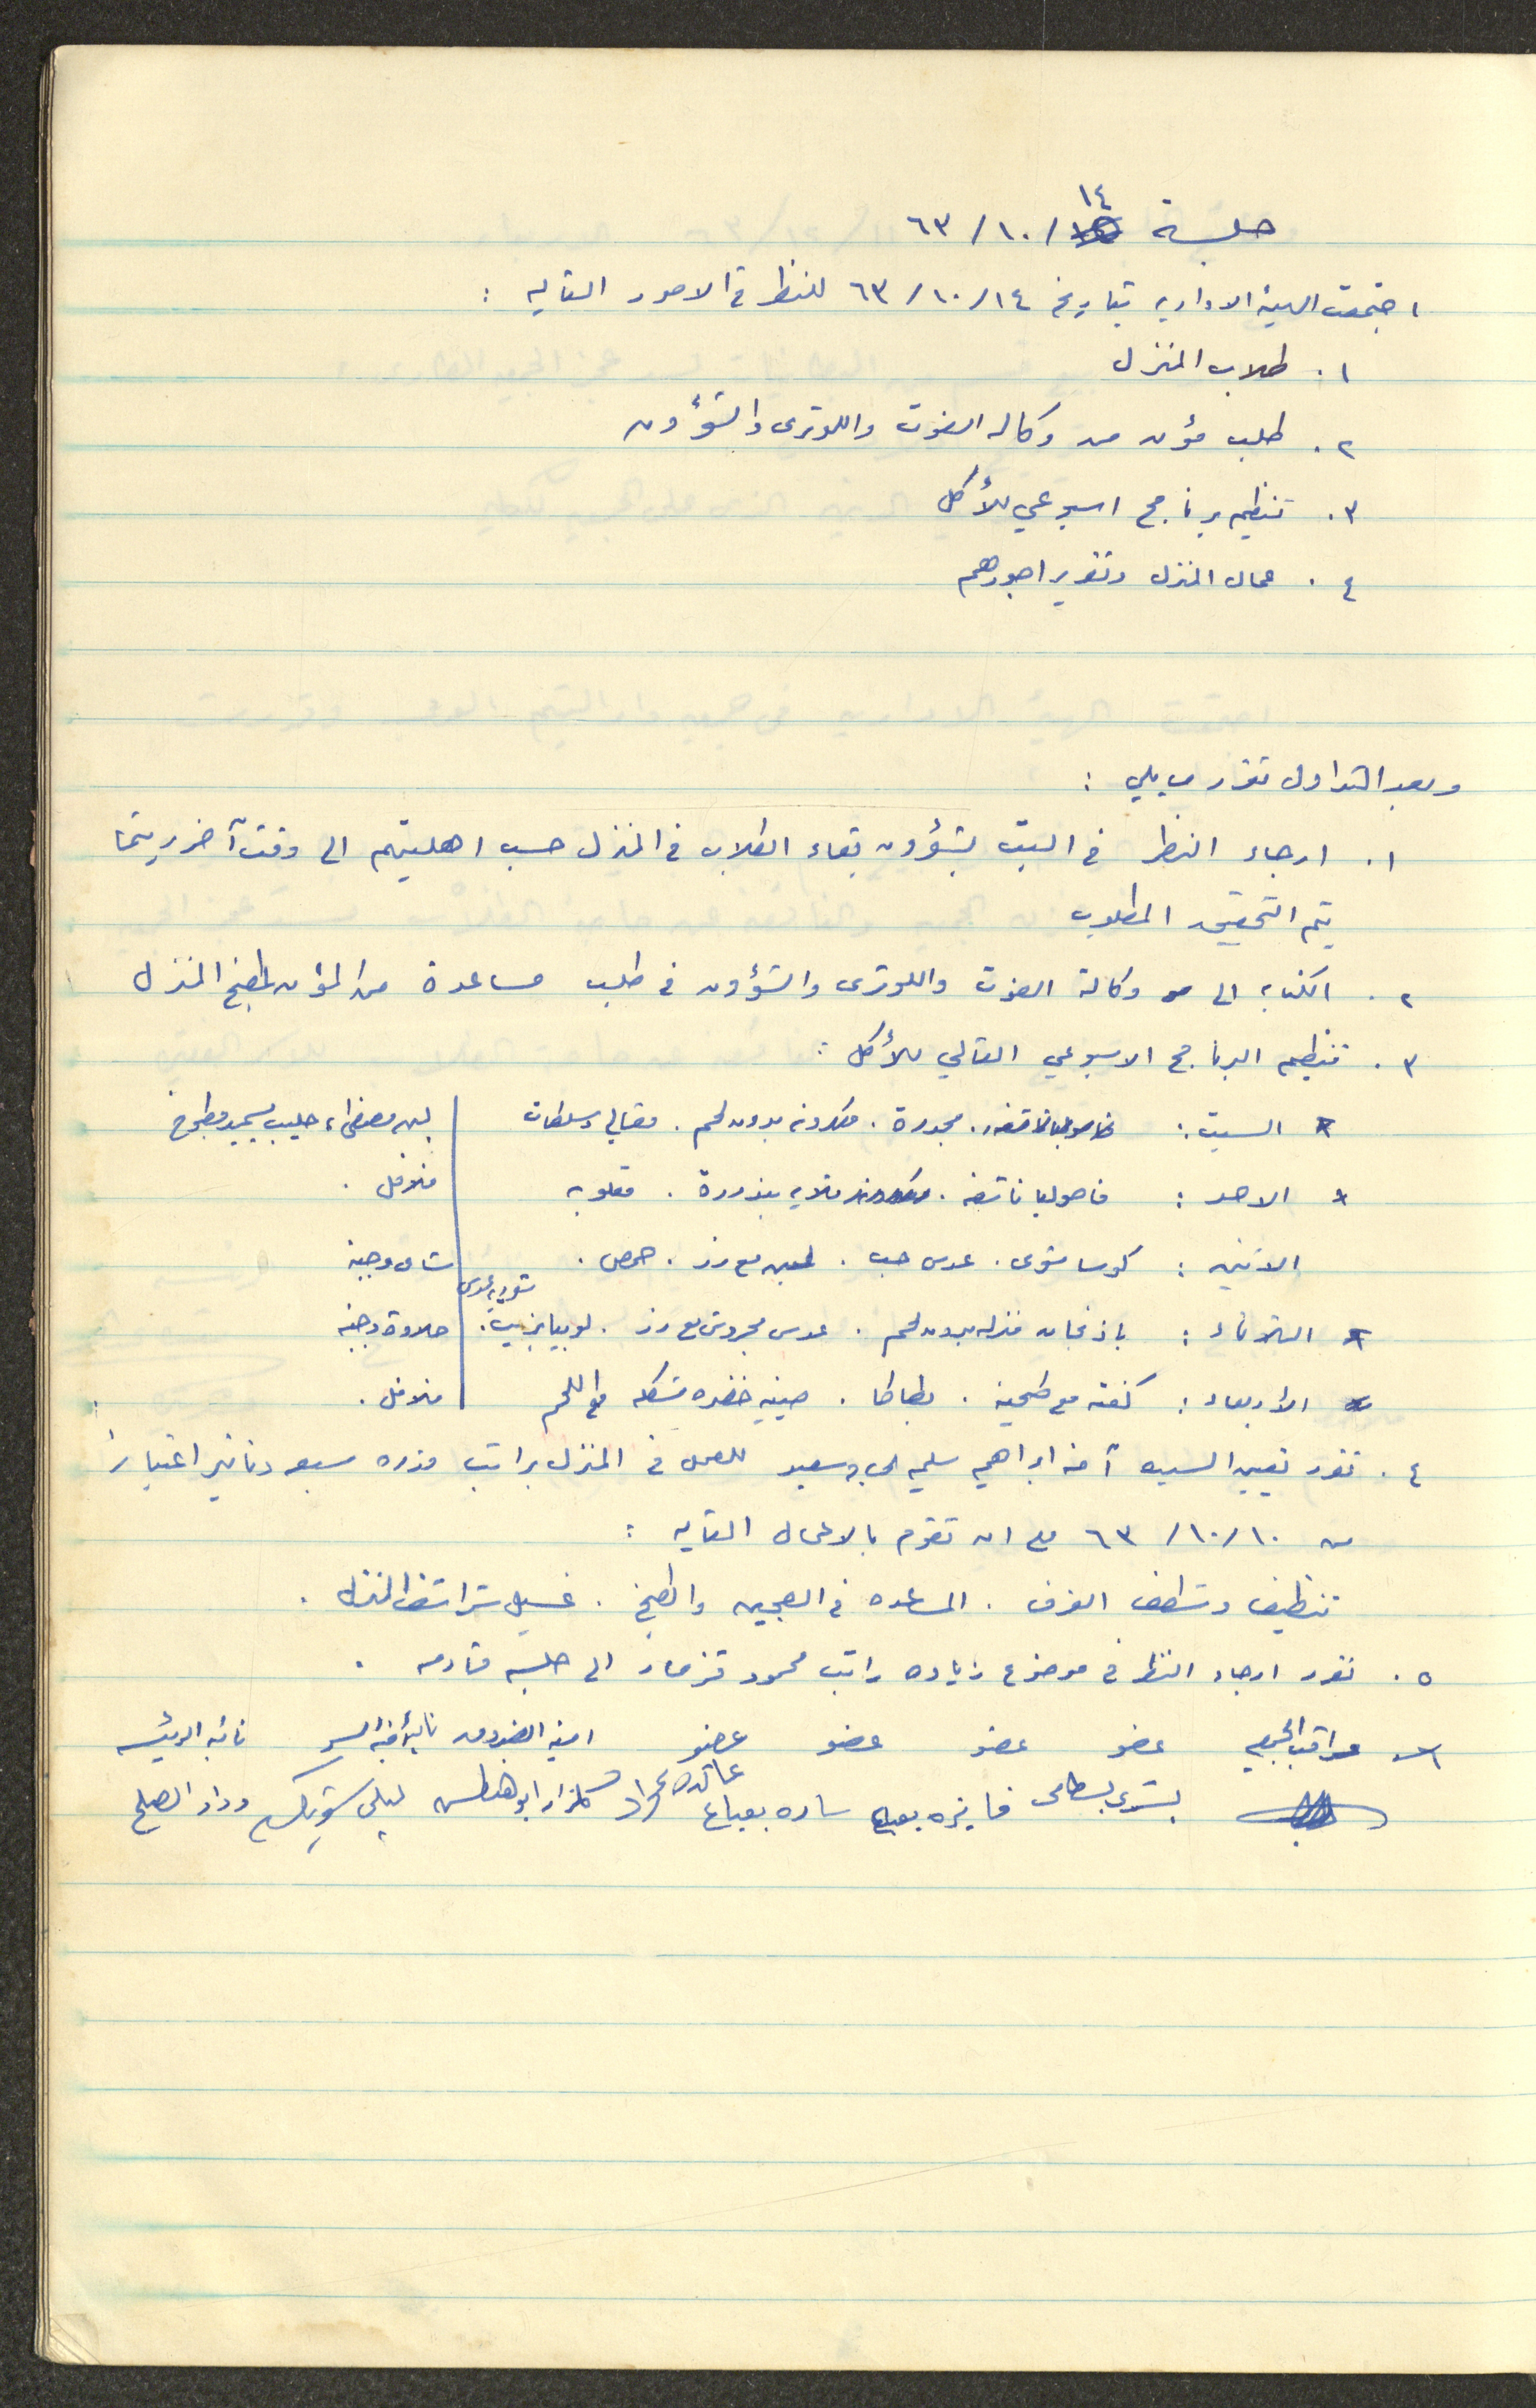 جلسة ١٤/١٠/٦٣
اجتمعت الهيئة الادارية بتاريخ ١٤/١٠/٦٣ للنظر في الامور التاليه :
١. طلاب المنزل
٢. طلب مؤن من وكاله الغوث واللوثري والشؤون
٣. تنظيم برنامج اسبوعي للأكل
٤. عمال المنزل وتقرير اجورهم
وبعد التداول تقرر ما يلي :
١. ارجاء النظر في البت بشؤون بقاء الطلاب في المنزل حسب اهليتهم الى وقت آخر ريثما
يتم التحقيق المطلوب
٢. الكتابه الى وكالة الغوث واللوثري والشؤون في طلب مساعدة من المؤن لمطبخ المنزل
٣. تنظيم البرنامج الاسبوعي التالي للأكل :
* السبت : مجدرة . معكرونه بدون لحم . مقالي وسلطات | لبن مصفى، حليب
* الاحد : فاصوليا ناشفه . قلايه بندورة . مقلوبه | فلافل .
الاثنين : كوسا شوى . عدس حب . لبن مع رز . حمص . | شاي وجبنة
شوربة عدس
* الثلاثاء : باذنجان منزله بدون لحم . عدس مجروش مع رز . لوبيا بزيت . | حلاوة وجبنه
* الأربعاء : كفته مع طحينة . بطاطا . صينيه خضره مشكله مع اللحم | فلافل .
٤. تقرر تعيين السيده آمنه ابراهيم سليم سعيد للعمل في المنزل براتب قدره سبعه دنانير اعتباراً
من ١٠/١٠/٦٣ على ان تقوم بالاعمال التاليه :
تنظيف وشطف الغرف . المساعده في العجين والطبخ . غسيل شراشف المنزل .
٥. تقرر ارجاء النظر في موضوع زياده راتب محمود قزمار الى جلسه قادمه .
مراقب الجمعيه عضو عضو عضو عضو امينه الصندوق نائبة أمينة السر نائبه الرئيسه
بشرى بسطامي فايزه بعباع ساره بعباع عائده مراد گلزار ابو هنطش ليلى شويكه وداد الصلح